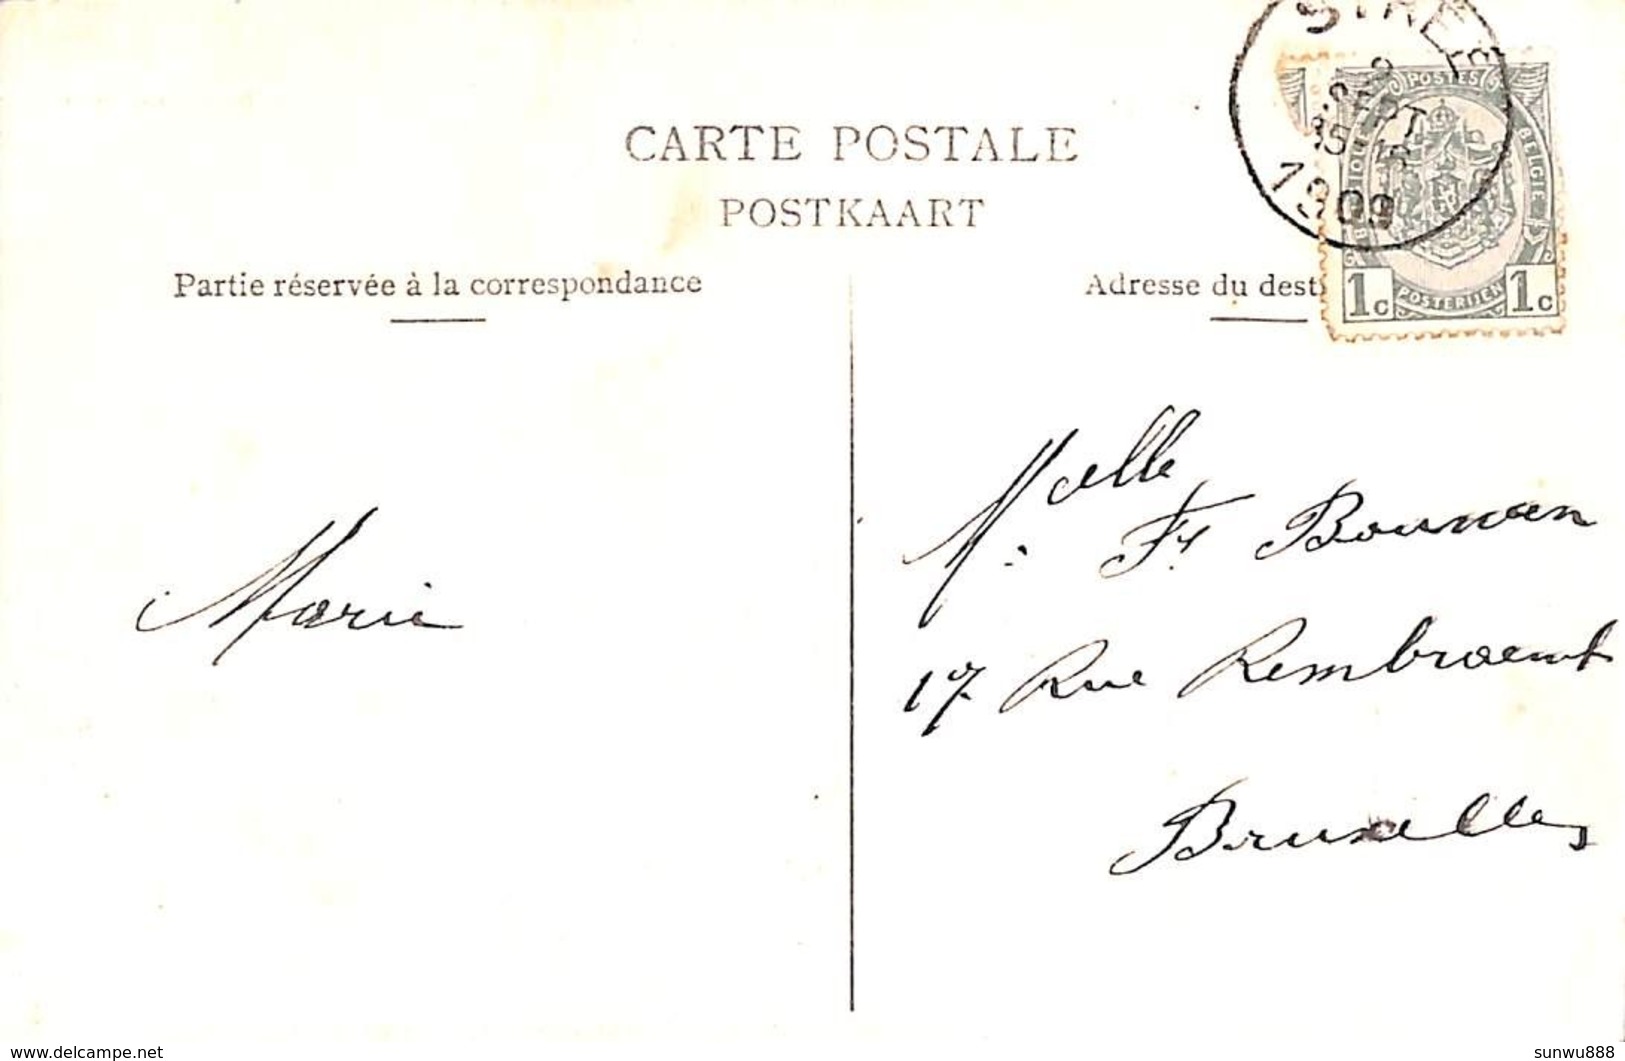 STRÉE
SEPT
1909
POSTES
BELGIE
1c POSTERIJEN 1c
CARTE POSTALE
POSTKAART
Partie réservée à la correspondance
Adresse du dest
Marie
Melle Fr Bouwen
17 Rue Rembrandt
Bruxelles
www.delcampe.net
sunwu888